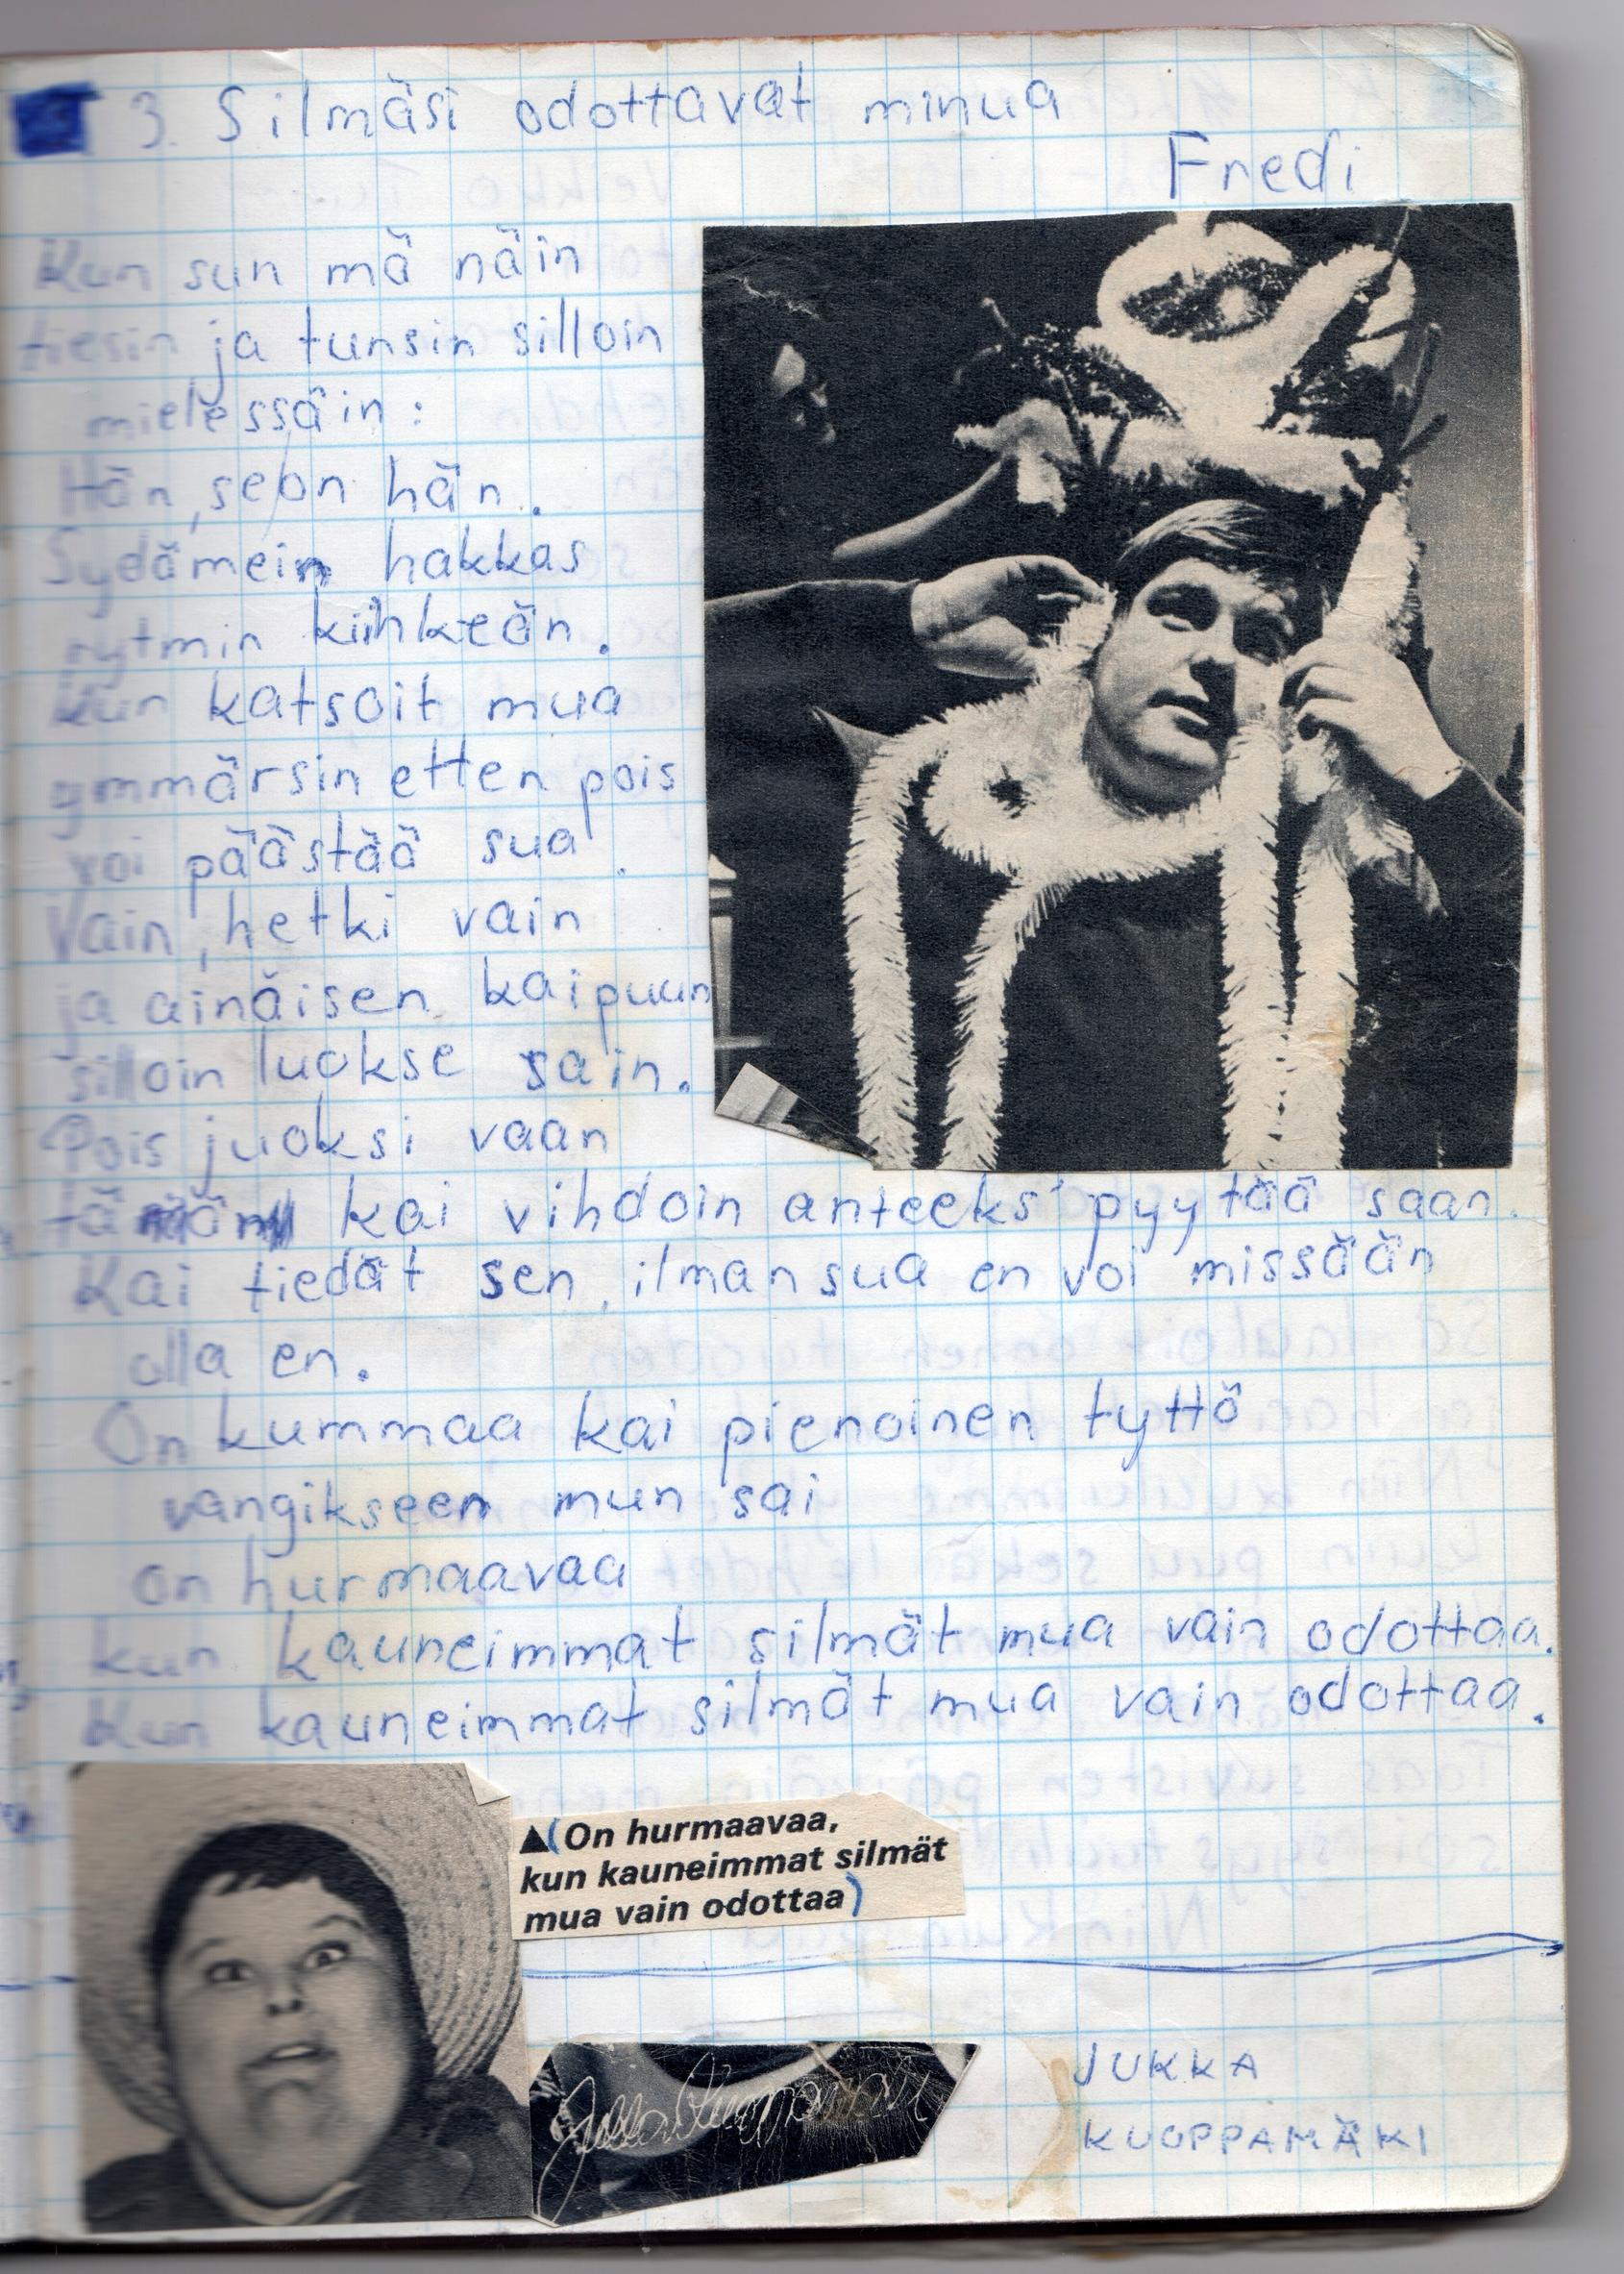 3. Silmäsi odottavat minua
Fredi
Kun sun mä näin
tiesin ja tunsin silloin
mielessäin:
Hän, seon hän.
Sydämein hakkas
rytmin kiihkeän.
Kun katsoit mua
ymmärsin etten pois
voi päästää sua.
Vain, hetki vain
ja ainäisen kaipuun
silloin luokse sain.
Pois juoksi vaan
kai vihdoin anteeks' pyytää saan.
Kai tiedät sen, ilman sua en voi missään
olla en.
On kummaa kai pienoinen tyttö
vangikseen mun sai
on hurmaavaa
kun kauneimmat silmät mua vain odottaa.
Kun kauneimmat silmät mua vain odottaa.
▲(On hurmaavaa,
kun kauneimmat silmät
mua vain odottaa)
JUKKA
KUOPPAMÄKI